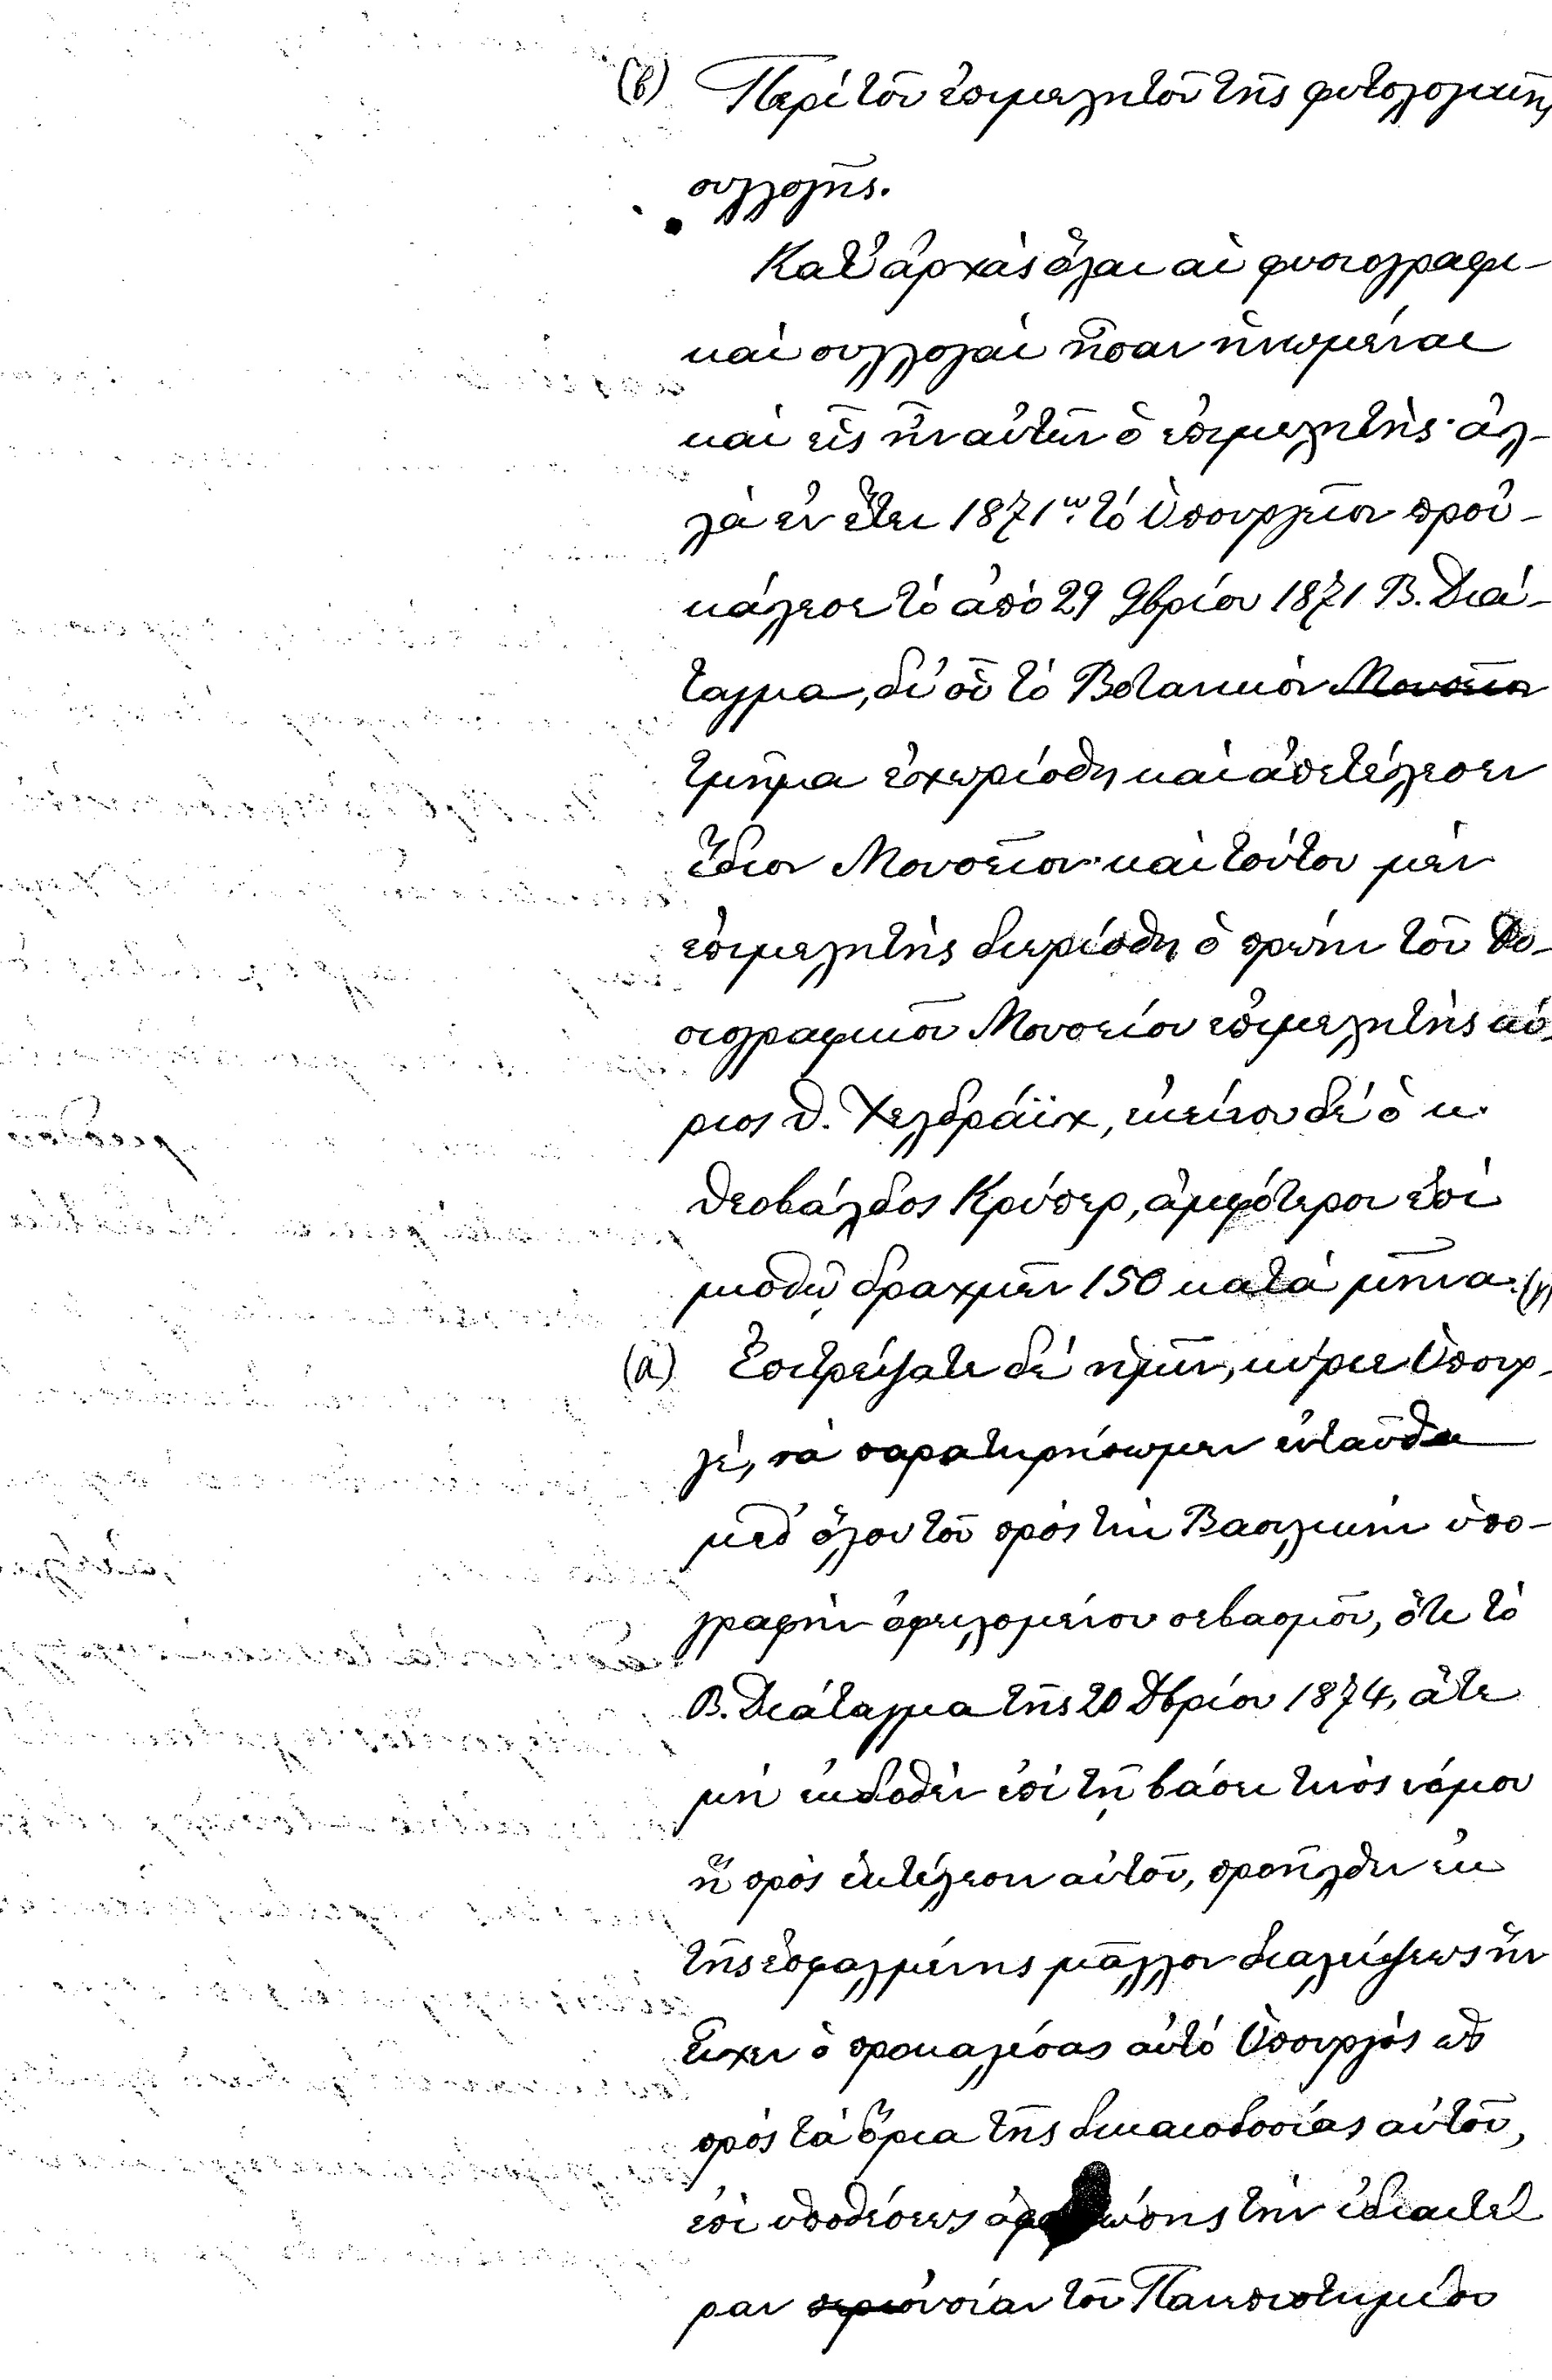 (β) Περὶ τοῦ ἐπιμελητοῦ τῆς φυτολογικῆς
συλλογῆς.
Κατ' ἀρχὰς ὅλαι αἱ φυσιογραφι-
καὶ συλλογαὶ ἦσαν ἡνωμέναι
καὶ εἷς ἦν αὐτῶν ὁ ἐπιμελητὴς· ἀλ-
λὰ ἐν ἔτει 1871ῳ τὸ Ὑπουργεῖον προὐ-
κάλεσε τὸ ἀπὸ 29 9βρίου 1871 Β. Διά-
ταγμα, δι' οὗ τὸ Βοτανικὸν Μουσεῖον
τμῆμα ἐχωρίσθη καὶ ἀπετέλεσεν
ἴδιον Μουσεῖον· καὶ τούτου μὲν
ἐπιμελητὴς διωρίσθη ὁ πρώην τοῦ Φυ-
σιογραφικοῦ Μουσείου ἐπιμελητὴς κύ-
ριος Θ. Χελδράϊχ, ἐκείνου δὲ ὁ κ.
Θεοβάλδος Κρύπερ, ἀμφότεροι ἐπὶ
μισθῷ δραχμῶν 150 κατὰ μῆνα. (γ)
(α) Ἐπιτρέψατε δὲ ἡμῖν, κύριε Ὑπουρ-
γέ, νὰ παρατηρήσωμεν ἐνταῦθα
μεθ' ὅλου τοῦ πρὸς τὴν Βασιλικὴν ὑπο-
γραφὴν ὀφειλομένου σεβασμοῦ, ὅτι τὸ
Β. Διάταγμα τῆς 20 Δβρίου 1874, ἅτε
μὴ ἐκδοθὲν ἐπὶ τῇ βάσει τινὸς νόμου
ἢ πρὸς ἐκτέλεσιν αὐτοῦ, προῆλθεν ἐκ
τῆς ἐσφαλμένης μᾶλλον διαλήψεως ἣν
εἶχεν ὁ προκαλέσας αὐτὸ Ὑπουργὸς ὡς
πρὸς τὰ ὅρια τῆς δικαιοδοσίας αὐτοῦ,
ἐπὶ ὑποθέσεως ἀφορώσης τὴν ἰδιαιτέ-
ραν περιουσίαν τοῦ Πανεπιστημίου